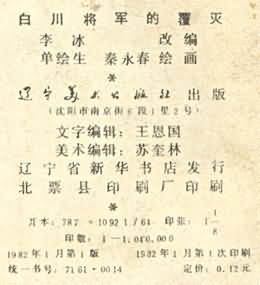 白川将军的覆灭
李冰 改编
单绘生 秦永春 绘画
*
辽宁美术出版社出版
(沈阳市南京街6段1里2号)
文字编辑:王恩国
美术编辑:苏奎林
*
辽宁省新华书店发行
北票县印刷厂印刷
*
开本:787×1092 1/64 印张:1 1/8
印数:1—1,040,000
1982年1月第1版 1982年1月第1次印刷
统一书号:7161·0014 定价:0.12元